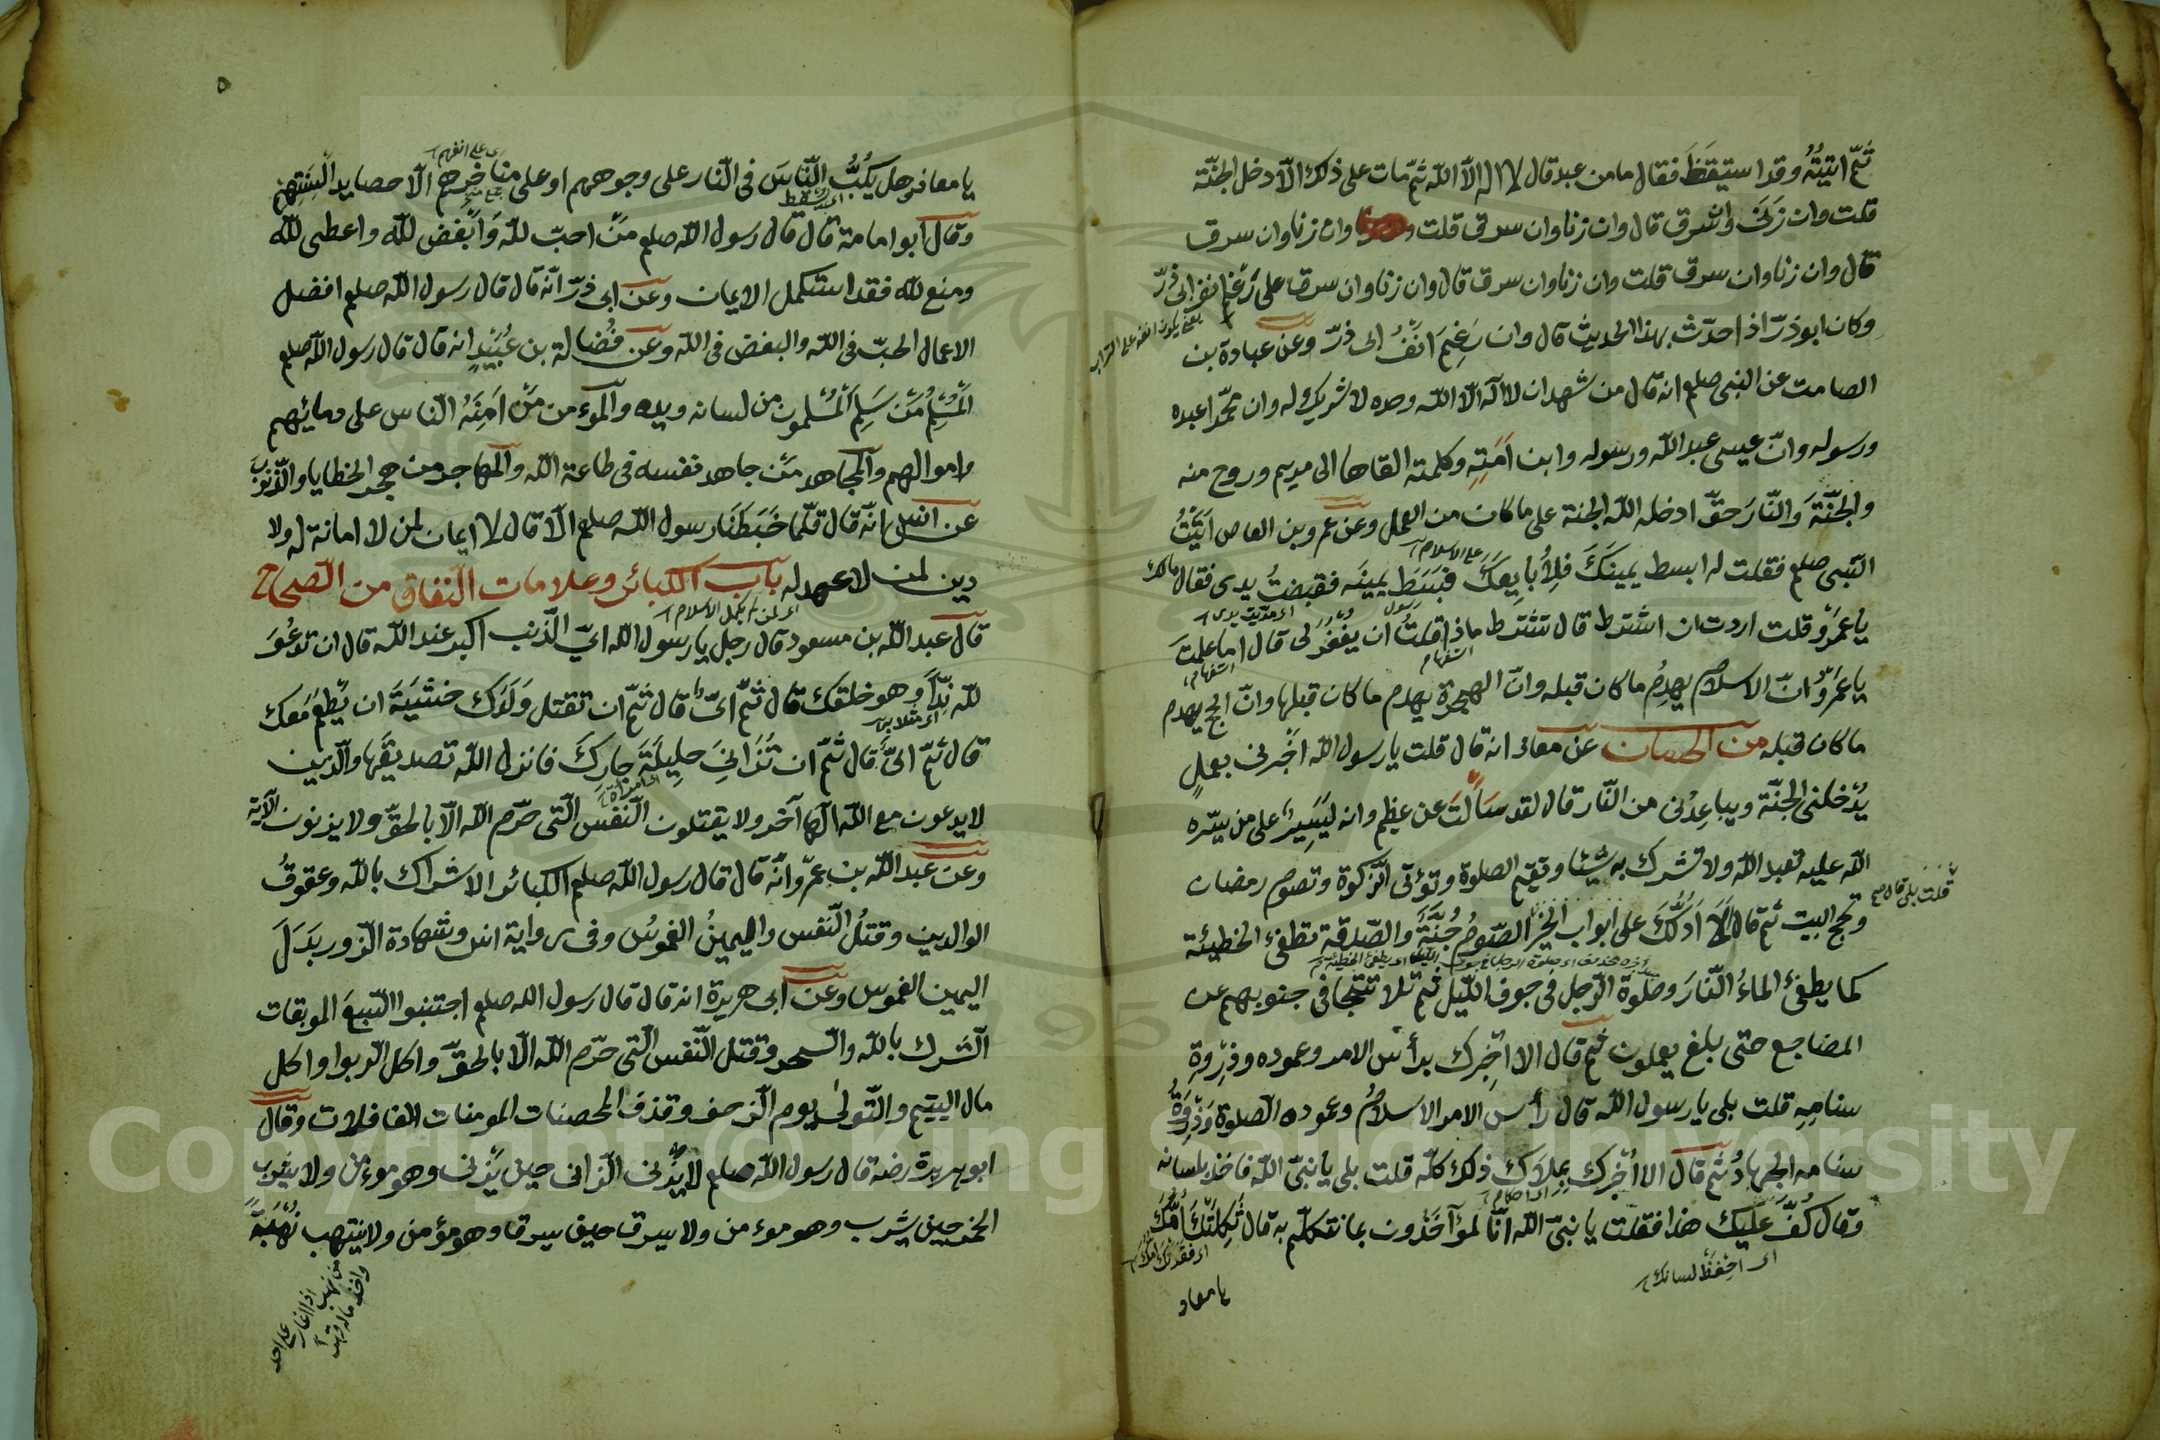 ثمّ اتيتُهُ وقد استيقَظَ فقال ما من عبد قال لا اله الّا الله ثمّ مات على ذلك الّا دخل الجنّة
قلت وان زَنَى وان سرق قال وان زنا وان سرق قلت وان زنا وان سرق
قال وان زنا وان سرق قلت وان زنا وان سرق قال وان زنا وان سرق على رَغْمِ انف ابى ذرّ
وكان ابو ذرّ اذا حدّث بهذا الحديث قال وان رَغِمَ اَنْفُ ابى ذرّ وعن عبادة بن
يعنى يكون انفه على التراب
الصامت عن النبى صلعم انه قال من شهد ان لا اله الّا الله وحده لا شريك له وان محمّدا عبده
ورسوله وانّ عيسى عبد الله ورسوله وابن اَمَتِهِ وكلمته القاها الى مريم وروح منه
والجنّةَ والنّارَ حقّ ادخله الله الجنة على ما كان من العمل وعن عمرو بن العاص اَتَيْتُ
النّبى صلعم فقلت له ابسط يمينَكَ فلِأُبايِعك فبَسَطَ يمينَه فقبضتُ يدى فقال مالك
على الاسلام
ياعَمرُو قلت اردت ان اشترط قال تشترط ماذا قلتُ ان يُغْفَرَ لى قال اما علمتَ
استفهام
ياعَمرُو انّ الاسلام يهدِمُ ما كان قبله وانّ الهجرة يهدم ما كان قبلها وانّ الحج يهدم
ما كان قبله من الحسان عن معاذ انه قال قلت يا رسول الله اَخْبِرنى بعملٍ
يُدْخلنى الجنّة ويباعِدُنى من النّار قال لقد سَاَلْتَ عن عظيم وانه ليَسِيرٌ على من يسّره
الله عليه تعبد الله ولا تشرك به شيئا وتقيم الصلوة وتؤتى الزكوة وتصوم رمضان
وتحج البيت ثم قال الَا اَدُلُّكَ على ابواب الخير الصّومُ جُنَّةٌ والصّدقة تطفئ الخطيئة
قلت بلى قال صح
كما يطفئ الماءُ النّارَ وصلوة الرّجل فى جوف اللّيل ثمّ تلا تتجافى جنوبهم عن
المضاجع حتى بلغ يعملون ثمّ قال الا اخبرك برأس الامر وعموده وذِروةِ
سنامِهِ قلت بلى يا رسول الله قال رأس الامر الاسلامُ وعموده الصلوة وَذِروَةُ
سنامه الجهادُ ثم قال الا اُخبرك بمِلاك ذلك كلّه قلت بلى يا نبىّ الله فاخذ بلسانه
وقال كُفَّ عَلَيك هذا فقلت يا نبىّ الله انّا لمؤاخَذون بما نتكلّم به قال ثَكِلَتْكَ اُمُّكَ
اى احفظ لسانك
اى فقدتك امّك
يا معاذ
٥
يا معاذ وهل يَكُبُّ النّاسَ فى النّار على وجوههم او على مناخرهم الّا حصايد اَلْسِنَتِهِم
اى على انفهم
اى يسقط
وقال ابو امامة قال قال رسول الله صلعم مَن احبّ للّه وَاَبْغض للّه واعطى للّه
ومنع للّه فقد استكمل الايمان وعن ابى ذرّ انّه قال قال رسول الله صلعم افضل
الاعمال الحبّ فى الله والبغض فى الله وعن فُضَالة بن عُبَيْدٍ انه قال قال رسول الله صلعم
اَلْمُسْلِمُ مَن سَلِمَ الْمُسْلمون من لسانه ويده والمؤمن مَن اَمِنَهُ الناس على دمائهم
واموالهم والمجاهد مَن جاهد نفسه فى طاعة الله والمهاجر من هجر الخطايا والذّنوبَ
عن انس انّه قال قلّما خَطَبَنَا رسول الله صلعم الّا قال لا ايمان لمن لا امانة له ولا
دين لمن لا عهد له باب الكبائر وعلامات النفاق من الصحاح
اى لمن لا يكمل الاسلام
قال عبد الله بن مسعود قال رجل يا رسول الله اىّ الذنب اكبر عند الله قال ان تدعُوَ
للّه نِدّاً وهو خلقك قال ثمّ اىّ قال ثمّ ان تقتل وَلَدَك خَشْيَةَ ان يَطْعمَ معك
قال ثمّ اىّ قال ثمّ ان تُزَانِىَ حلِيلَةَ جارِكَ فانزل الله تصديقَها والّذين
اى امراة
لا يدعون مع الله الها آخر ولا يقتلون النّفس الّتى حرّم الله الّا بالحقّ ولا يزنون الآية
وعن عبد الله بن عمرو انّه قال قال رسول الله صلعم الكبائر الاشراك بالله وعقوقُ
الوالدين وقتلُ النّفس واليمينُ الغموسُ وفى رواية انس وشهادة الزّور بَدَلَ
اليمين الغموس وعن ابى هريرة انه قال قال رسول الله صلعم اجتنبوا السّبعَ الموبقات
الشّرك بالله والسّحر وقتل النّفس الّتى حرّم الله الّا بالحقّ واكل الربوا واكل
مال اليتيم والتّولى يوم الزحف وقذف المحصنات المومنات الغافلات وقال
ابو هريرة رضه قال رسول الله صلعم لا يَزْنى الزانى حين يَزْنى وهو مؤمن ولا يشرب
الخمر حين يشرب وهو مؤمن ولا يسرق حين يسرق وهو مؤمن ولا ينتهب نُهْبَةً
Copyright © King Saud University
1957